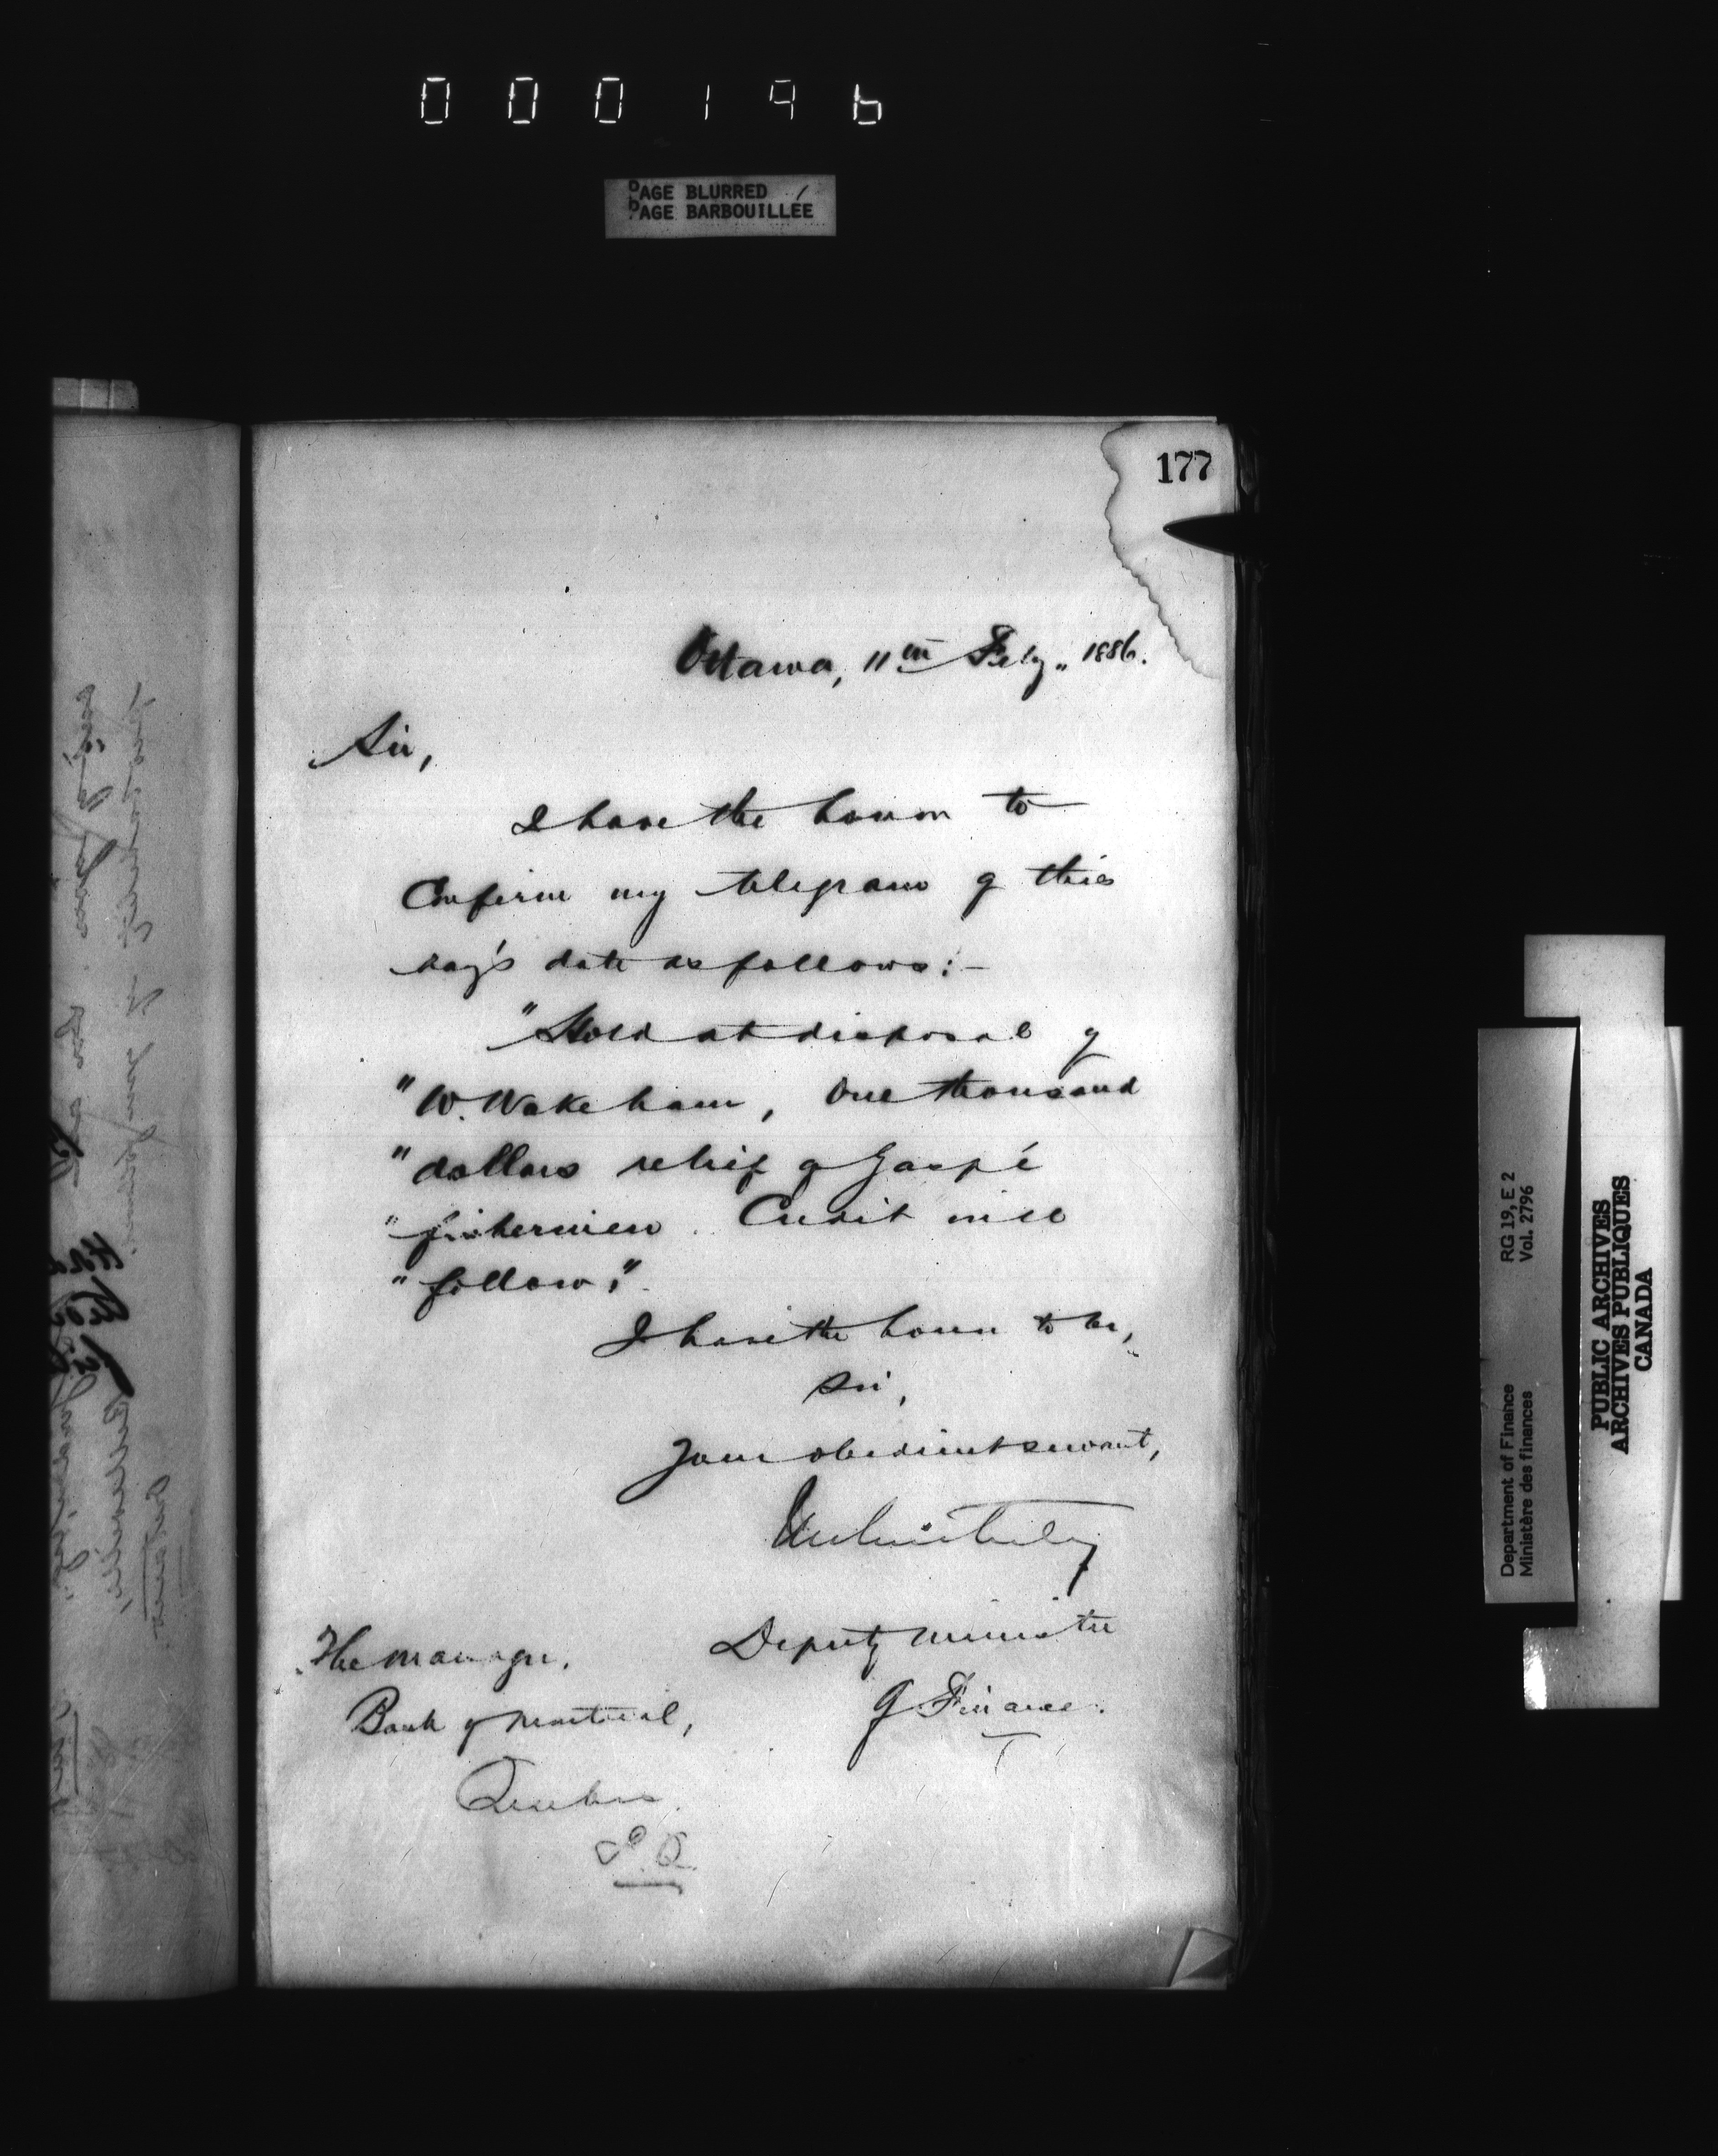 000196
PAGE BLURRED
PAGE BARBOUILLÉE
177
Ottawa, 11th Feby. 1886.
Sir,
I have the honor to
Confirm my telegram of this
day's date as follows:-
"Hold at disposal of
"W. Wakeham, One thousand
"dollars relief of Gaspé
"fishermen. Credit will
"follow."
I have the honor to be,
Sir,
Your obedient servant,
Deputy Minister
of Finance.
The Manager,
Bank of Montreal,
Quebec.
P.Q.
Department of Finance
Ministère des finances
RG 19, E 2
Vol. 2796
PUBLIC ARCHIVES
ARCHIVES PUBLIQUES
CANADA